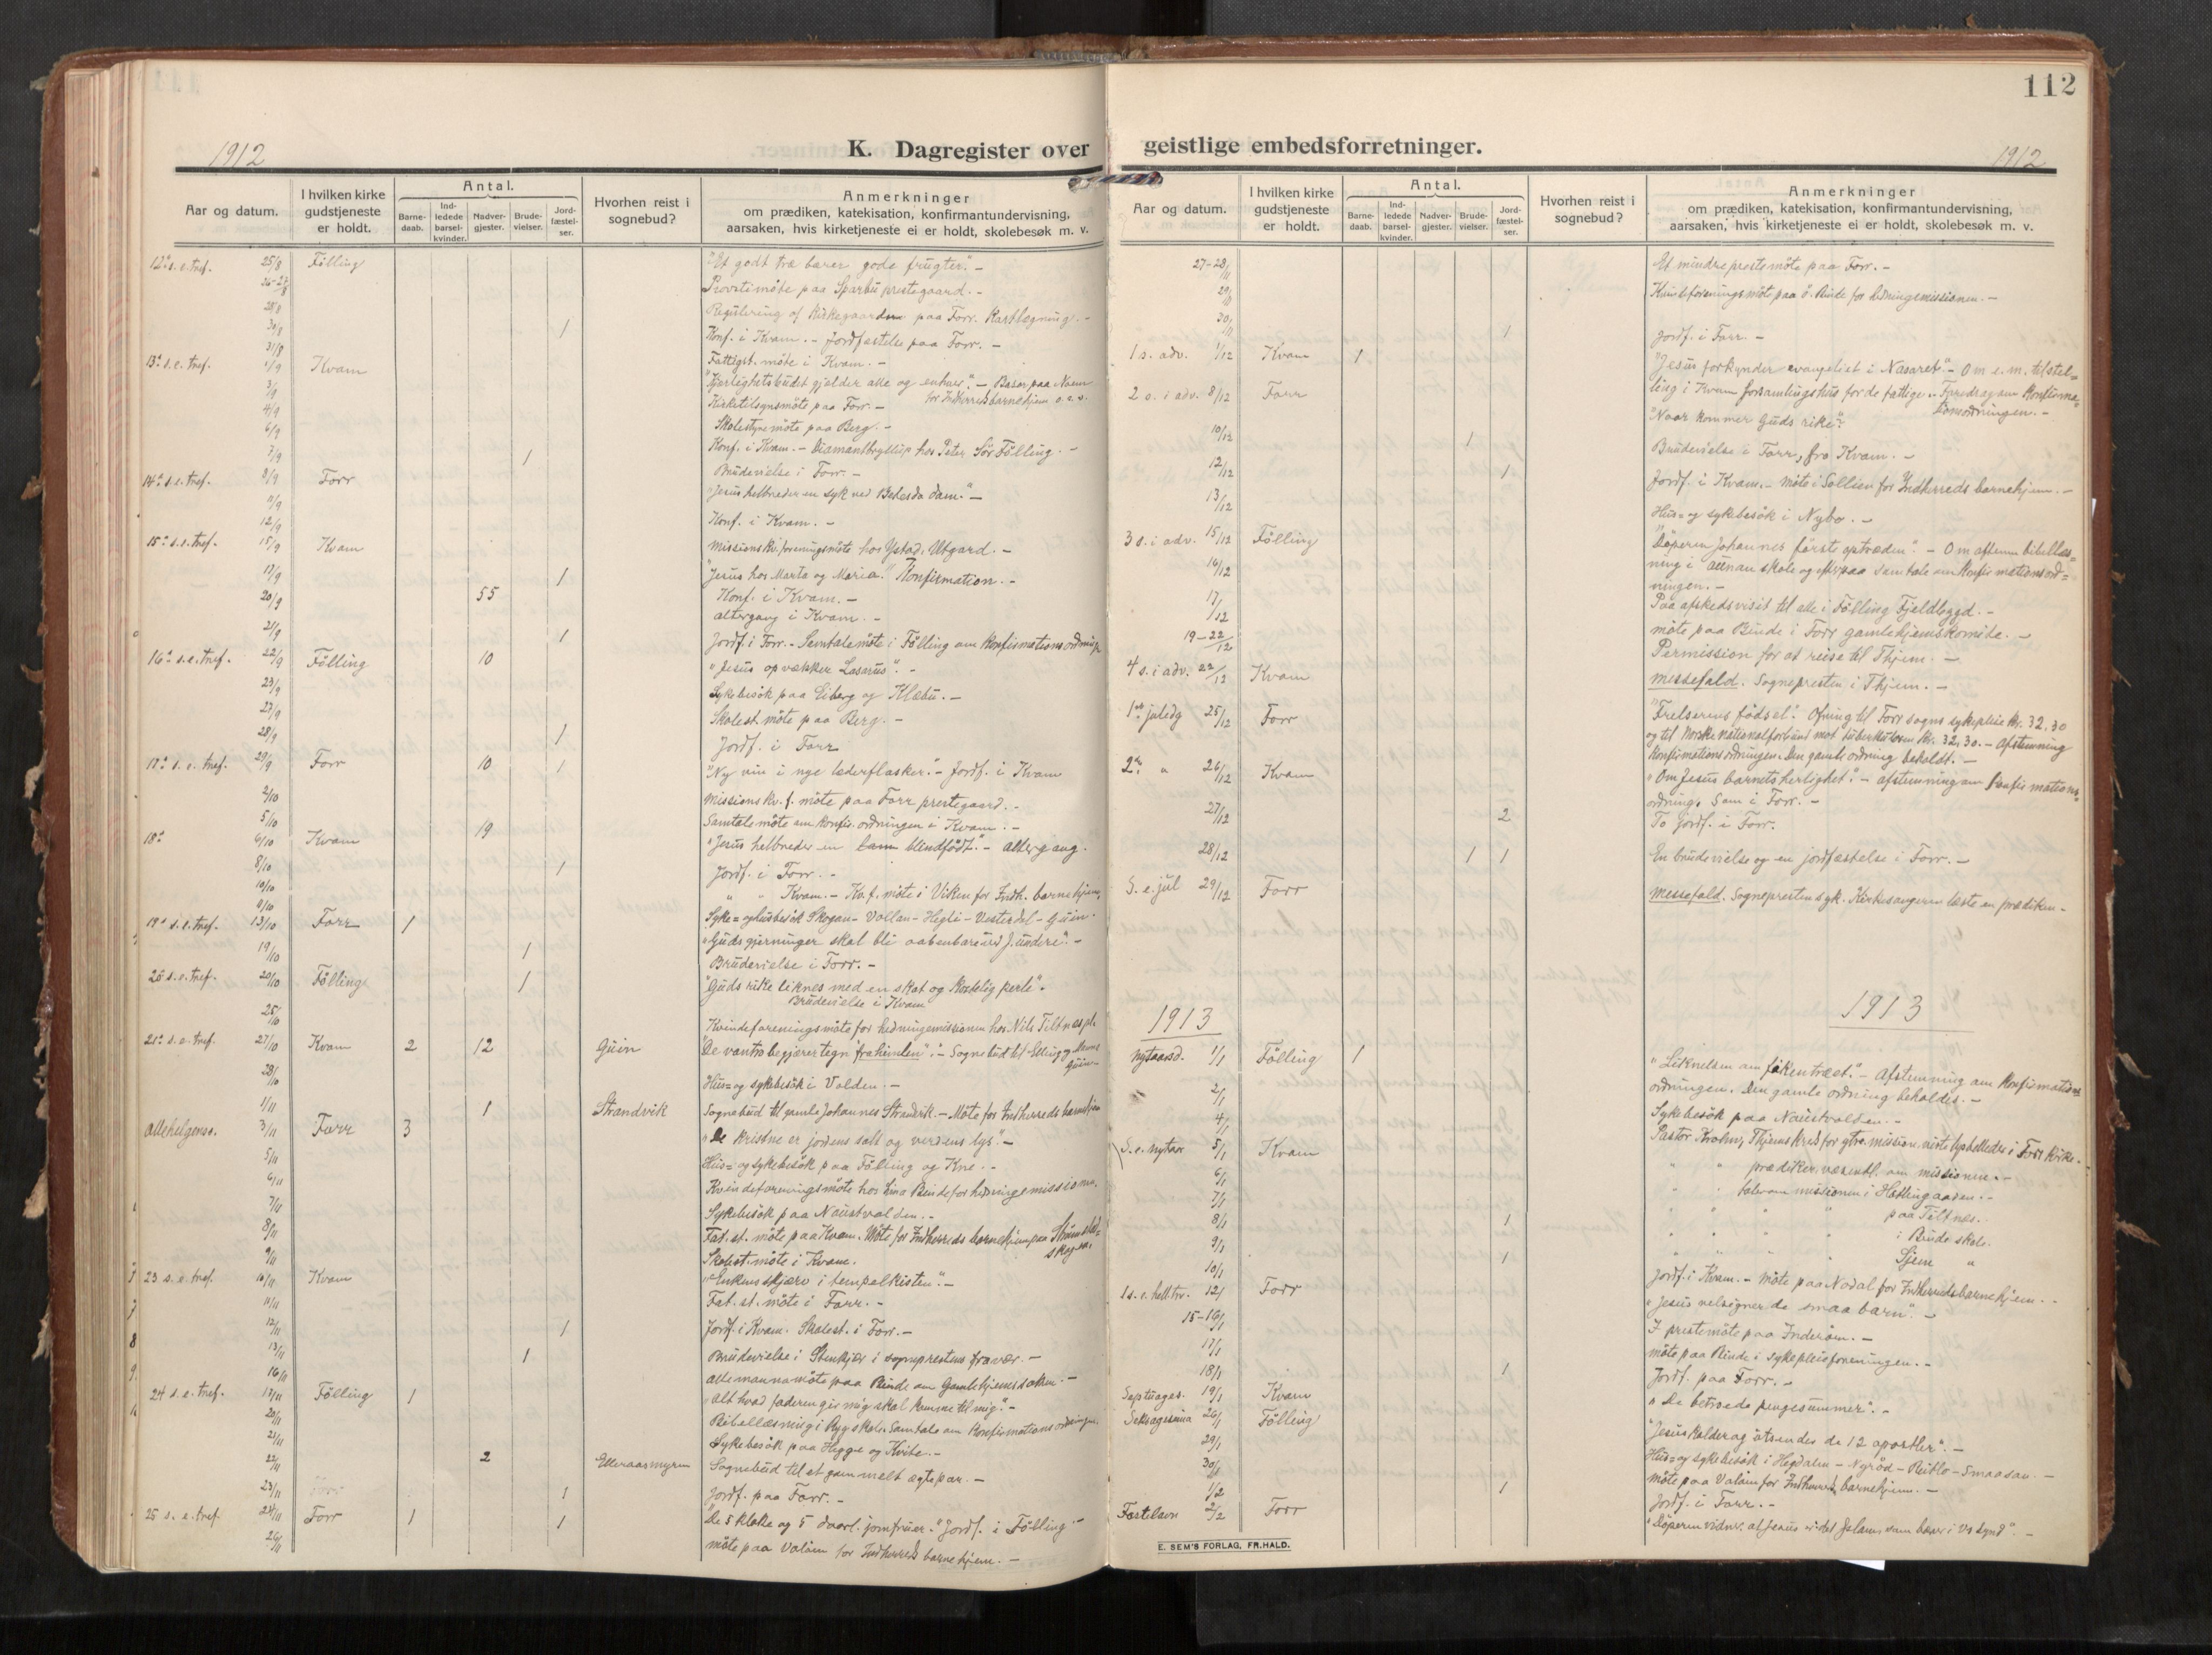 112
1912
K. Dagregister over geistlige embedsforretninger.
1912
Aar og datum.
I hvilken kirke gudstjeneste er holdt.
Antal.
Barnedaab.
Indledede barselkvinder.
Nadvergjester.
Brudevielser.
Jordfæstelser.
Hvorhen reist i sognebud?
Anmerkninger
om prædiken, katekisation, konfirmantundervisning,
aarsaken, hvis kirketjeneste ei er holdt, skolebesøk m. v.
12. s.e. tref. 25/8 Følling "Et godt træ bærer gode frugter." -
26-27/8 Provstimøte paa Sparbu prestegaard. -
28/8 Regulering af Kirkegaarden paa Forr. Kartlægning. -
30/8 1 Konf. i Kvam. - Jordfæstelse paa Forr. -
31/8 Fattigst. møte i Kvam. -
13. s.e. tref. 1/9 Kvam "Kjærlighetsbudet gjelder alle og enhver." - Basar paa
for Indherreds barnehjem
3/9 Kirketilsynsmøte paa Forr. -
4/9 Skolestyremøte paa Berg. -
6/9 Konf. i Kvam. - Diamantbryllup hos Peter Sør Følling. -
7/9 1 Brudevielse i Forr. -
14. s.e. tref. 8/9 Forr "Jesus helbreder en syk ved Betesda dam." -
11/9 Konf. i Kvam. -
12/9 Missionskv.foreningsmøte hos Ystad, Utgard. -
15. s.e. tref. 15/9 Kvam "Jesus hos Marta og Maria." Konfirmation. -
17/9 1 Konf. i Kvam. -
20/9 55 Altergang i Kvam. -
21/9 1 Jordf. i Forr. - Samtalemøte i Følling om Konfirmationsordning
16. s.e. tref. 22/9 Følling 10 "Jesus opvækker Lasarus". -
23/9 Sykebesøk paa Eiberg og Klæbu. -
27/9 Skolest. møte paa Berg. -
28/9 1 Jordf. i Forr
17. s.e. tref. 29/9 Forr 10 1 "Ny vin i nye læderflasker." - Jordf. i Kvam
2/10 Missions kv. f. møte paa Forr prestegaard. -
5/10 Samtalemøte om konfir. ordningen i Kvam. -
18. 6/10 Kvam 19 "Jesus helbreder en blindfødt." - Altergang.
8/10 1 Jordf. i Forr. -
10/10 " " Kvam. - Kv. f. møte i Viken for Indh. barnehjem.
9/10 Syke= og husbesøk Skogan - Vollan - Hegli - Vesterdal - Guin.
19. s.e. tref. 13/10 Forr 1 "Guds gjerninger skal bli aabenbare ved J. undere". -
19/10 1 Brudevielse i Forr. -
20. s.e. tref. 20/10 Følling 1 "Guds rike liknes med en skat og kostelig perle".
Brudevielse i Kvam
25/10 Kvindeforeningsmøte for hedningemissionen hos Nils Tiltnes pl.
21. s.e. tref. 27/10 Kvam 2 12 Guin "De vantro begjærer tegn fra himlen". - Sognebud til Elling
Guin -
28/10 Hus= og sykebesøk i Volden. -
1/11 1 Strandvik Sognebud til gamle Johannes Strandvik. - Møte for Indherreds barnehjem
Allehelgenss. 3/11 Forr 3 "De kristne er jordens salt og verdens lys". -
5/11 Hus= og sykebesøk paa Følling og Kne. -
6/11 Kvindeforeningsmøte hos Lina Binde for hedningemissionen.
7/11 Sykebesøk paa Naustvolden. -
8/11 Fat. st. møte paa Kvam. Møte for Indherreds barnehjem paa
skogen.
9/11 Skolest. møte i Kvam.
23 s.e. tref. 10/11 Kvam "Enkens skjærv i tempelkisten". -
11/11 Fat. st. møte i Forr. -
12/11 1 Jordf. i Kvam. Skolest. i Forr. -
13/11 1 Brudevielse i Stenkjær i sogneprestens fravær. -
16/11 Allemannamøte paa Binde om Gamlehjemssaken. -
24 s.e. tref. 17/11 Følling 1 "Alt hvad faderen gir mig skal komme til mig". -
20/11 Bibellæsning i Ryg skole. Samtale om Konfirmationsordningen.
21/11 Sykebesøk paa Hegge og Kvite. -
22/11 2 Elleraasmyren Sognebud til et gammelt ægtepar. -
23/11 1 Jordf. paa Forr. -
25 s. e. tref. 24/11 Forr 1 1 "De 5 kloke og 5 daarl. jomfruer." Jordf. i Følling -
26/11 Møte paa Valøen for Indherreds barnehjem. -
Aar og datum.
I hvilken kirke gudstjeneste er holdt.
Antal.
Barnedaab.
Indledede barselkvinder.
Nadvergjester.
Brudevielser.
Jordfæstelser.
Hvorhen reist i sognebud?
Anmerkninger
om prædiken, katekisation, konfirmantundervisning,
aarsaken, hvis kirketjeneste ei er holdt, skolebesøk m. v.
27-28/11 Et mindre prestemøte paa Forr. -
29/11 Kvindeforeningsmøte paa Ø. Binde for hedningemissionen. -
30/11 1 Jordf. i Forr. -
1 s. adv. 1/12 Kvam 1 "Jesus forkynder evangeliet i Nasaret". - Om e.m. tilstel=
ling i Kvam forsamlingshus for de fattige. - Foredrag om Konfirma=
tionsordningen. -
2 s. i adv. 8/12 Forr "Naar kommer Guds rike".
10/12 1 Brudevielse i Forr, fra Kvam. -
12/12 1 Jordf. i Kvam. - Møte i Sollien for Indherreds barnehjem. -
13/12 Hus= og sykebesøk i Nybo. -
3 s. i adv. 15/12 Følling "Døperen Johannes første optræden". - Om aftenen bibellæs=
ning i Aunan skole og efterpaa samtale om Konfirmationsord=
ningen. -
16/12 Paa afskedsvisit til alle i Følling Fjeldbygd. -
17/12 Møte paa Binde i Forr gamlehjemskomite. -
19-22/12 Permission for at reise til Thjem. -
4 s. i adv. 22/12 Kvam Messefald. Sognepresten i Thjem. -
1ste juledg 25/12 Forr "Frelserens fødsel". Ofring til Forr sogns sykepleie kr. 32.30
og til Norske nationalforbund mot tuberkulosen kr. 32.30. - Afstemning
Konfirmationsordningen. Den gamle ordning beholdt. -
2. " 26/12 Kvam "Om Jesus barnets herlighet." - Afstemning om Konfirmations=
ordning. Som i Forr. -
27/12 2 To jordf. i Forr.
28/12 1 1 En brudevielse og en jordfæstelse i Forr. -
S. e. jul 29/12 Forr Messefald. Sognepresten syk. Kirkesangeren læste en prædiken. -
1913
1913
Nytaarsd. 1/1 Følling 1 "Liknelsen om fikentræet." - Afstemning om Konfirmations
ordningen. Den gamle ordning beholdes. -
2/1 Sykebesøk paa Naustvolden. -
4/1 Pastor Krohn, Thjems kred for ytre mission. viste lysbilleder i Forr kirke. -
S. e. nytaar 5/1 Kvam " " prædiker væsentl. om missionen. -
6/1 " " taler om missionen i Hatlingaasen. -
7/1 " " " " paa Tiltnes.
8/1 1 " " " " i Binde skole.
9/1 " " " " Sjem "
10/1 1 Jordf. i Kvam. - Møte paa Nodal for Indherreds barnehjem. -
1 s. e. hell.tr. 12/1 Forr "Jesus velsigner de smaa barn". -
15-16/1 I prestemøte paa Inderøen. -
17/1 Møte paa Binde i sykepleieforeningen. -
18/1 1 Jordf. paa Forr. -
Septuages. 19/1 Kvam "De betroede pengesummer". -
Seksagesima 26/1 Følling "Jesus kalder og utsendes de 12 apostler". -
29/1 Hus= og sykebesøk i Hegdalen - Nyrød - Reitlo - Smaasan. -
30/1 Møte paa Valøen for Indherreds barnehjem. -
1/2 1 Jordf. i Forr. -
Fastelavn 2/2 Forr "Døperen vidner at Jesus er det Gslam, som bærer Vs synd". -
E. SEM'S FORLAG, FR.HALD.